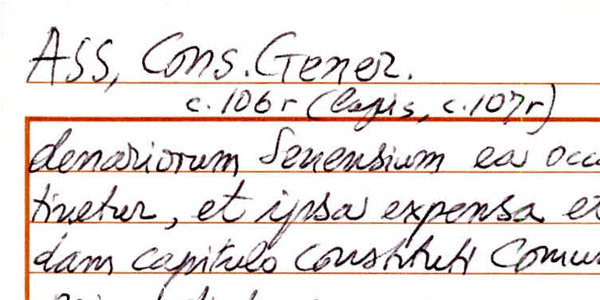 ASS, Cons. Gener.
c. 106 r (lapis, c. 107 r)
denariorum Senensium ea occa
tinetur, et ipsa expensa et
dam capitulo constituti Comu